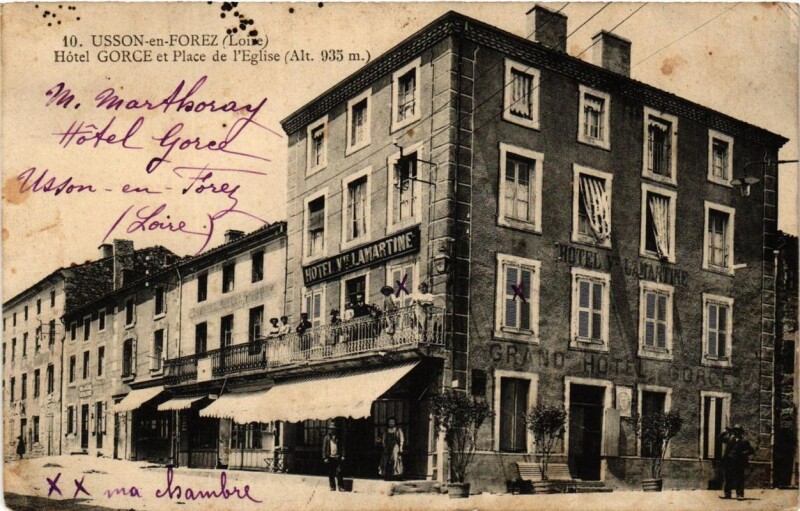 10. USSON-en-FOREZ (Loire)
Hôtel GORCE et Place de l'Eglise (Alt. 935 m.)
M. Marthoray
Hôtel Gorce
Usson-en-Forez
(Loire)
HOTEL Vve LAMARTINE
HOTEL Vve LAMARTINE
GRAND HOTEL GORCE
x x
x x ma chambre